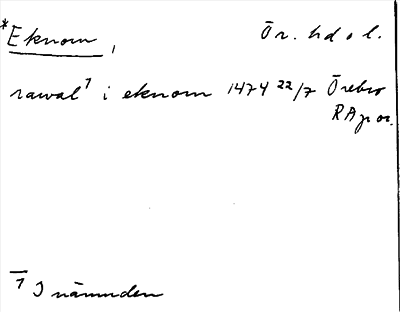 *Eknom, Ör. hd o l.
rawal¹ i eknom 1474 22/7 Örebro
RA p or.
1 I nämnden